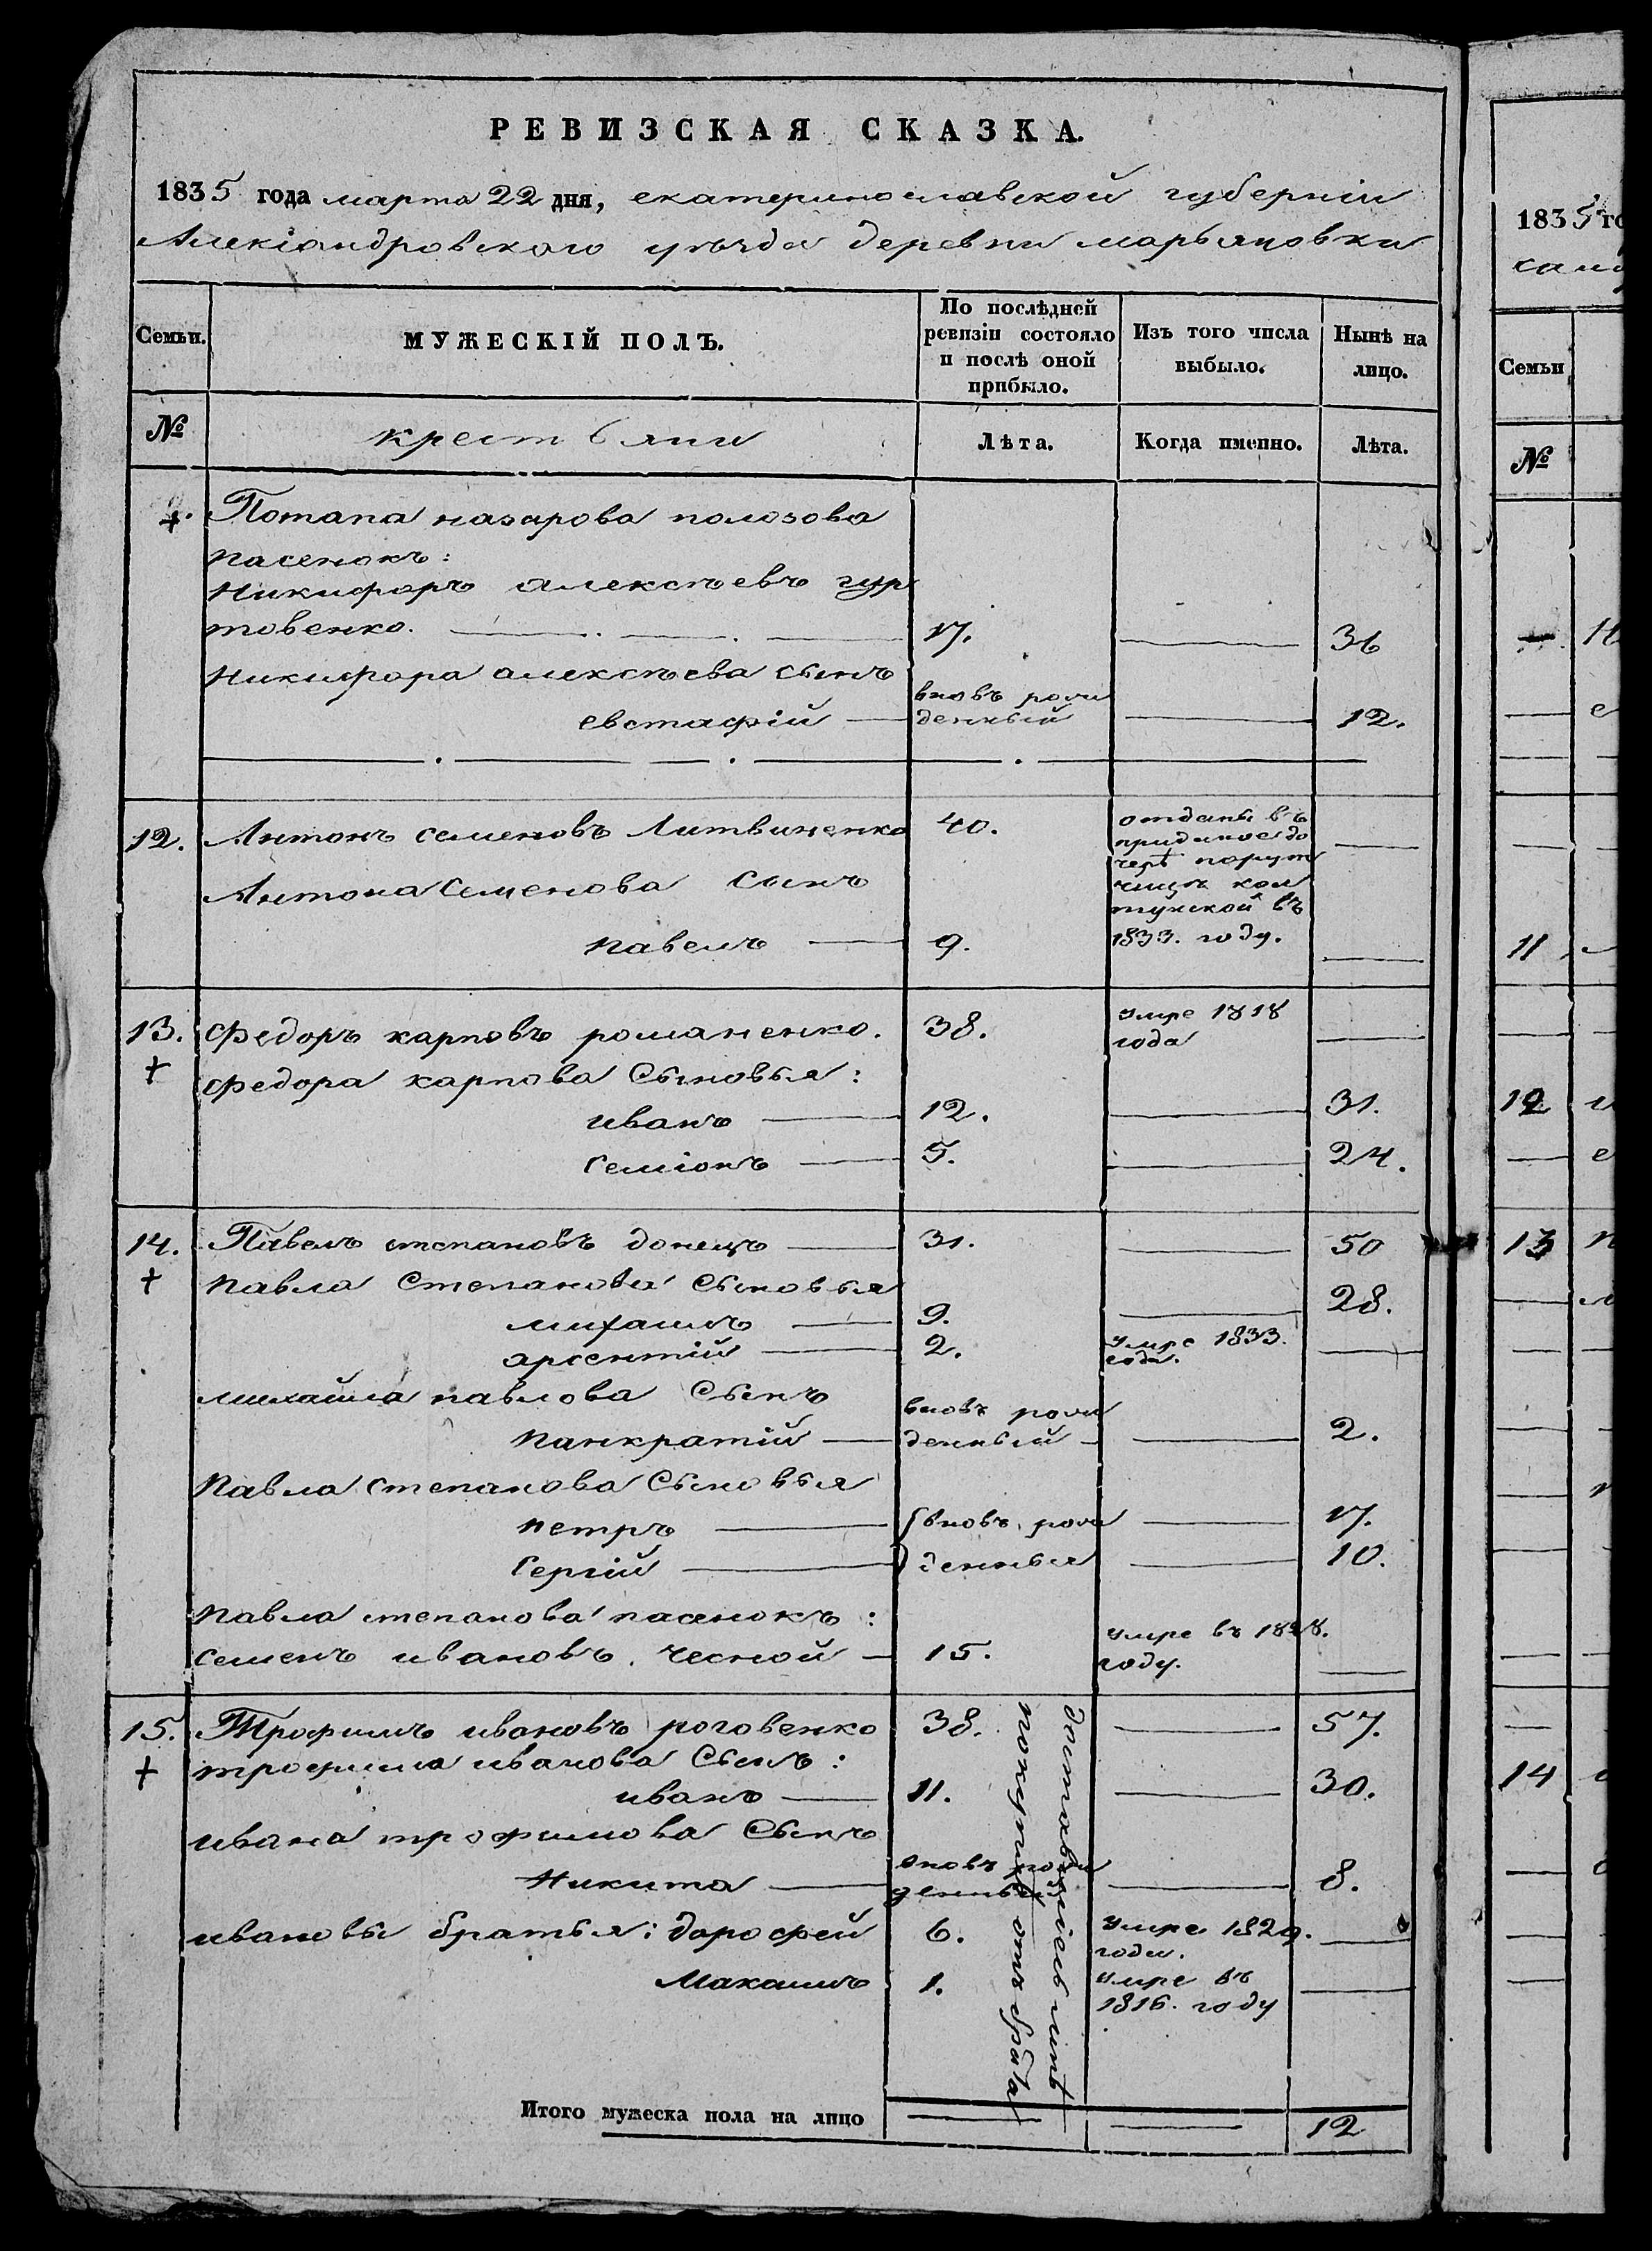 РЕВИЗСКАЯ СКАЗКА.
1835 года марта 22 дня, екатеринославской губернiи
Алекiандровского уѣзда деревни марьяновки
Семьи.
МУЖЕСКIЙ ПОЛЪ.
По послѣдней ревизiи состояло и послѣ оной прибыло.
Изъ того числа выбыло.
Нынѣ на лицо.
№
крестьяни
Лѣта.
Когда именно.
Лѣта.
Потапа назарова полозова
пасенокъ:
Никифоръ алексѣевъ гур
товенко. 17. 36
Никифора алексѣева сынъ
евстафiй вновъ рож денный 12.
12. Антонъ семеновъ Литвиненко 40. отданы въ приданое до черѣ порут чицѣ кол тунской въ 1833. году.
Антона семенова сынъ
павелъ 9.
13. Федоръ карповъ романенко. 38. умре 1818 года
федора карпова Сыновья:
иванъ 12. 31.
семiонъ 5. 24.
14. Павелъ степановъ донецъ 31. 50
павла Степанова Сыновья
михаилъ 9. 28.
арсентiй 2. умре 1833. года.
михайла павлова Сынъ
панкратiй вновъ рож денный 2.
павла степанова Сыновья
петръ вновъ рож 17.
Сергiй денныя 10.
павла степанова пасенокъ:
семенъ ивановъ. чесной 15. умре въ 1828. году.
15. Трофимъ ивановъ роговенко 38. 57.
трофима иванова Сынъ:
иванъ 11. 30.
ивана трофимова Сынъ
Никита вновъ рож денный 8.
ивановы братья: дорофей 6. умре 1829. года.
Макаилъ 1. умре въ 1816. году
доставшiесь мнѣ
покупкѣ отъ брата
Итого мужеска пола на лицо 12
1835 го
Семьи
№
11
12
13
14